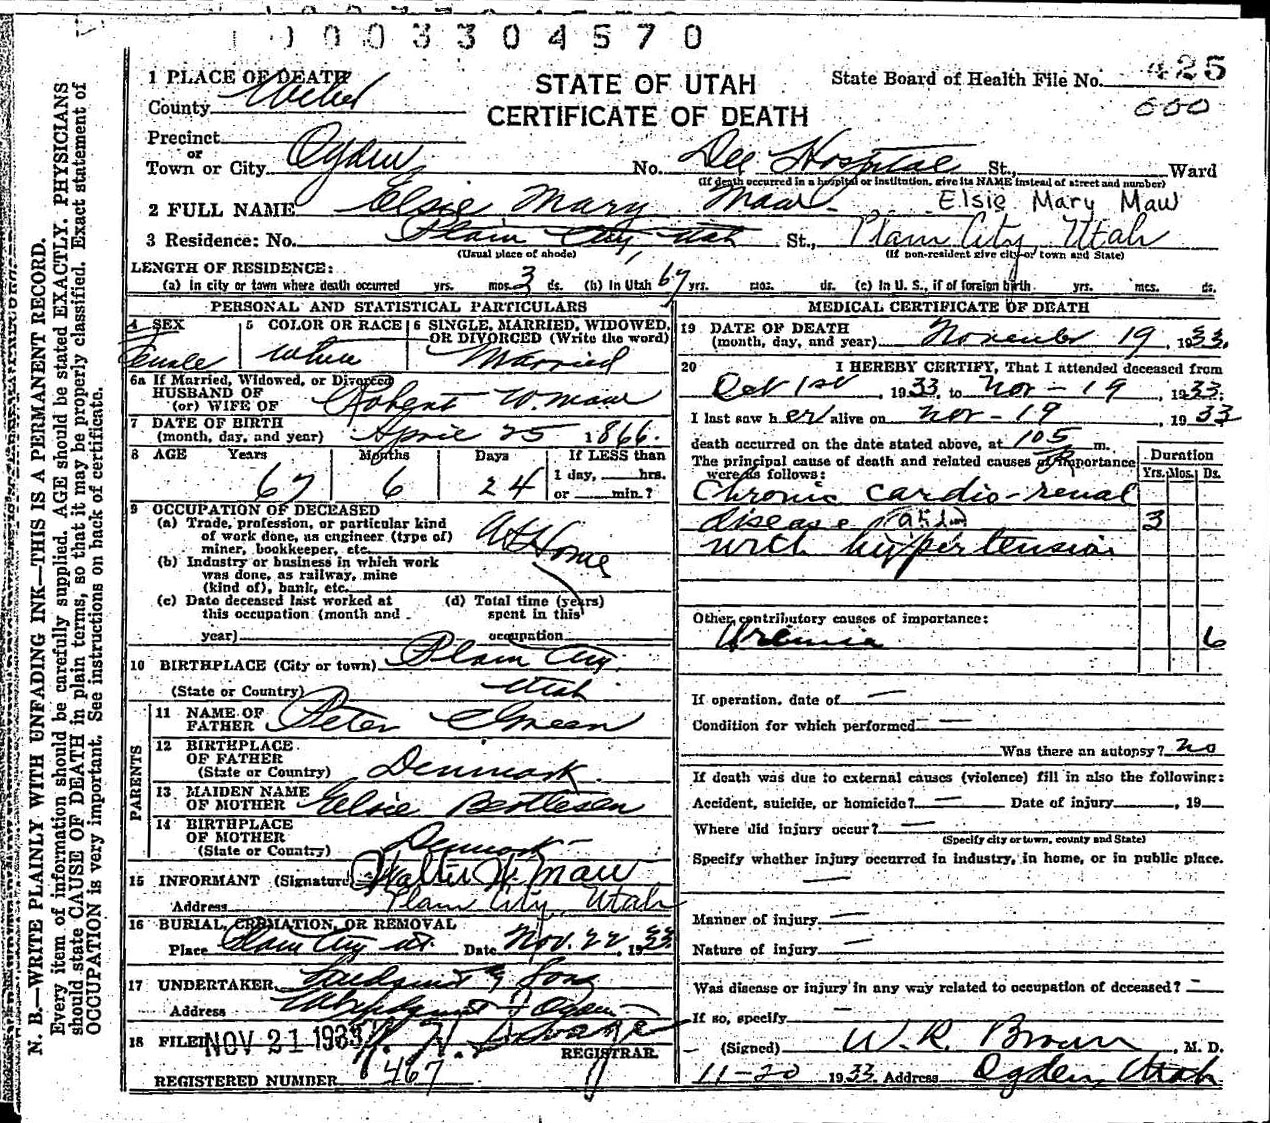 0003304570
STATE OF UTAH
CERTIFICATE OF DEATH
State Board of Health File No. 425
000
1 PLACE OF DEATH
County Weber
Precinct
or
Town or City Ogden No. Dee Hospital St., Ward
(If death occurred in a hospital or institution, give its NAME instead of street and number)
2 FULL NAME Elsie Mary Maw Elsie Mary Maw
3 Residence: No. Plain City, Utah St., Plain City, Utah
(Usual place of abode) (If non-resident give city or town and State)
LENGTH OF RESIDENCE:
(a) In city or town where death occurred yrs. mos. 3 ds. (b) In Utah 67 yrs. mos. ds. (c) In U. S., if of foreign birth yrs. mos. ds.
PERSONAL AND STATISTICAL PARTICULARS
4 SEX
Female
5 COLOR OR RACE
White
6 SINGLE, MARRIED, WIDOWED,
OR DIVORCED (Write the word)
Married
6a If Married, Widowed, or Divorced
HUSBAND OF
(or) WIFE OF Robert W. Maw
7 DATE OF BIRTH
(month, day, and year) April 25 1866.
8 AGE Years Months Days If LESS than
1 day, hrs.
or min.?
67 6 24
9 OCCUPATION OF DECEASED
(a) Trade, profession, or particular kind
of work done, as engineer (type of)
miner, bookkeeper, etc. At Home
(b) Industry or business in which work
was done, as railway, mine
(kind of), bank, etc.
(c) Date deceased last worked at
this occupation (month and
year)
(d) Total time (years)
spent in this
occupation
10 BIRTHPLACE (City or town) Plain City.
(State or Country) Utah
PARENTS
11 NAME OF
FATHER Peter C Green
12 BIRTHPLACE
OF FATHER
(State or Country) Denmark.
13 MAIDEN NAME
OF MOTHER Elsie
14 BIRTHPLACE
OF MOTHER
(State or Country) Denmark
15 INFORMANT (Signature) Walter W. Maw
Address Plain City, Utah
16 BURIAL, CREMATION, OR REMOVAL
Place Plain City Ut. Date Nov. 22, 1933
17 UNDERTAKER & Sons
Address Ogden
18 FILED NOV 21 1933
REGISTRAR.
REGISTERED NUMBER 467
MEDICAL CERTIFICATE OF DEATH
19 DATE OF DEATH
(month, day, and year) November 19, 1933.
20 I HEREBY CERTIFY, That I attended deceased from
Oct 1st, 1933, to Nov - 19, 1933.
I last saw her alive on Nov - 19, 1933
death occurred on the date stated above, at 105 m.
The principal cause of death and related causes of importance
were as follows:
Duration
Yrs. Mos. Ds.
Chronic cardio-renal
disease 3
with hypertension
Other contributory causes of importance:
Uremia 6
If operation, date of —
Condition for which performed — —
Was there an autopsy? no
If death was due to external causes (violence) fill in also the following:
Accident, suicide, or homicide? — Date of injury , 19
Where did injury occur? —
(Specify city or town, county and State)
Specify whether injury occurred in industry, in home, or in public place.
—
Manner of injury —
Nature of injury —
Was disease or injury in any way related to occupation of deceased? -
If so, specify —
(Signed) W. R. Brown, M. D.
11-20 1933. Address Ogden, Utah
N. B.—WRITE PLAINLY WITH UNFADING INK—THIS IS A PERMANENT RECORD.
Every item of information should be carefully supplied. AGE should be stated EXACTLY. PHYSICIANS
should state CAUSE OF DEATH in plain terms, so that it may be properly classified. Exact statement of
OCCUPATION is very important. See instructions on back of certificate.